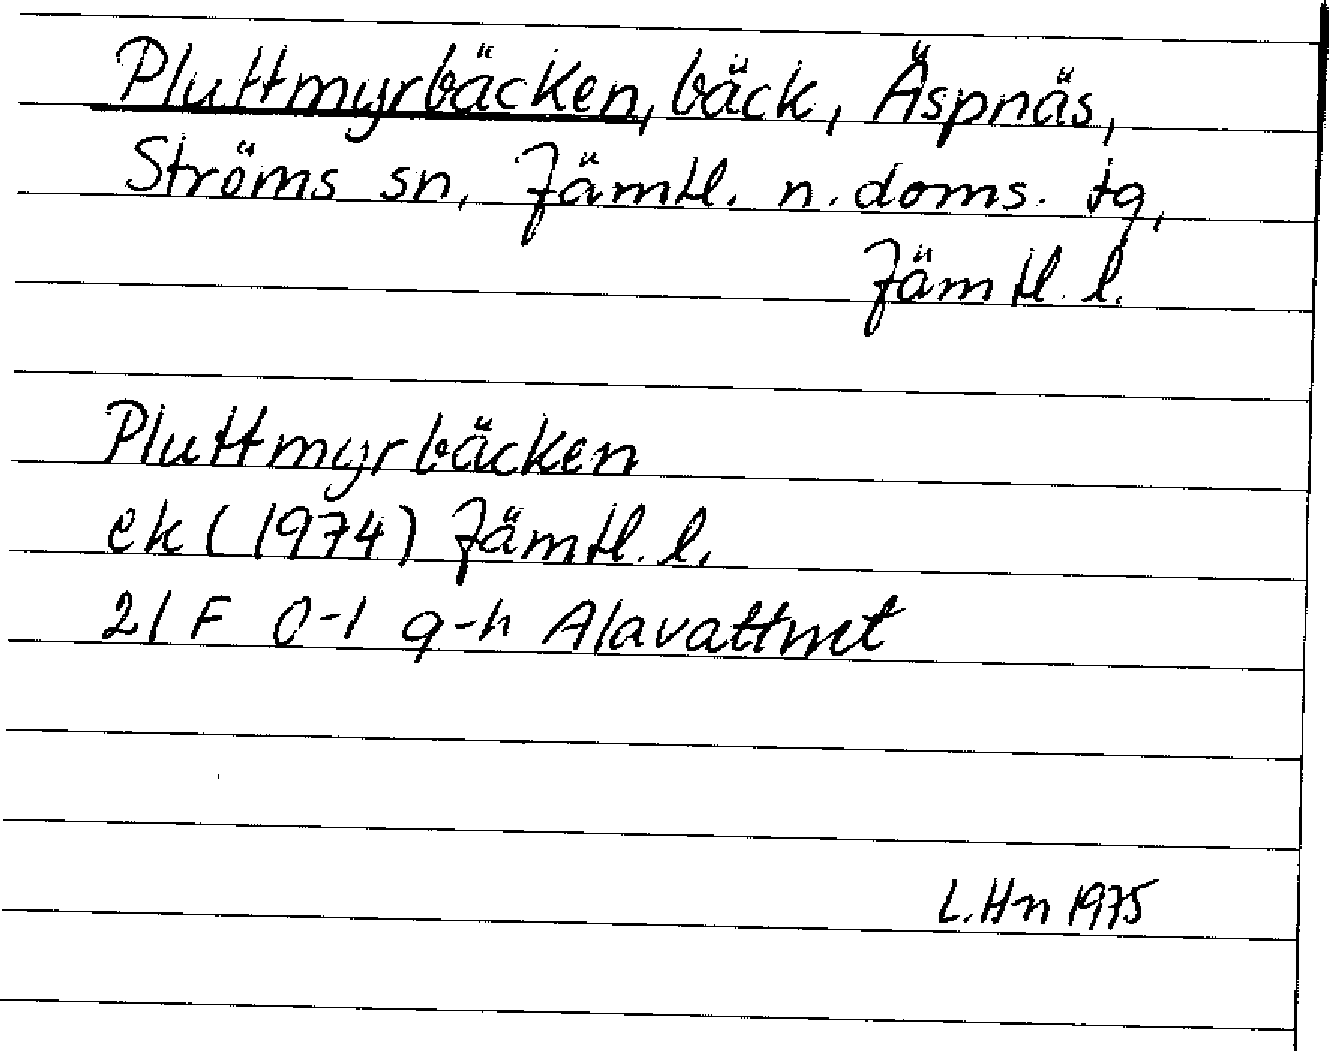 Pluttmyrbäcken, bäck, Äspnäs,
Ströms sn, Jämtl. n. doms. tg,
Jämtl. l.
Pluttmyrbäcken
ek (1974) Jämtl. l.
21 F 0-1 g-h Alavattnet
L. Hn 1975